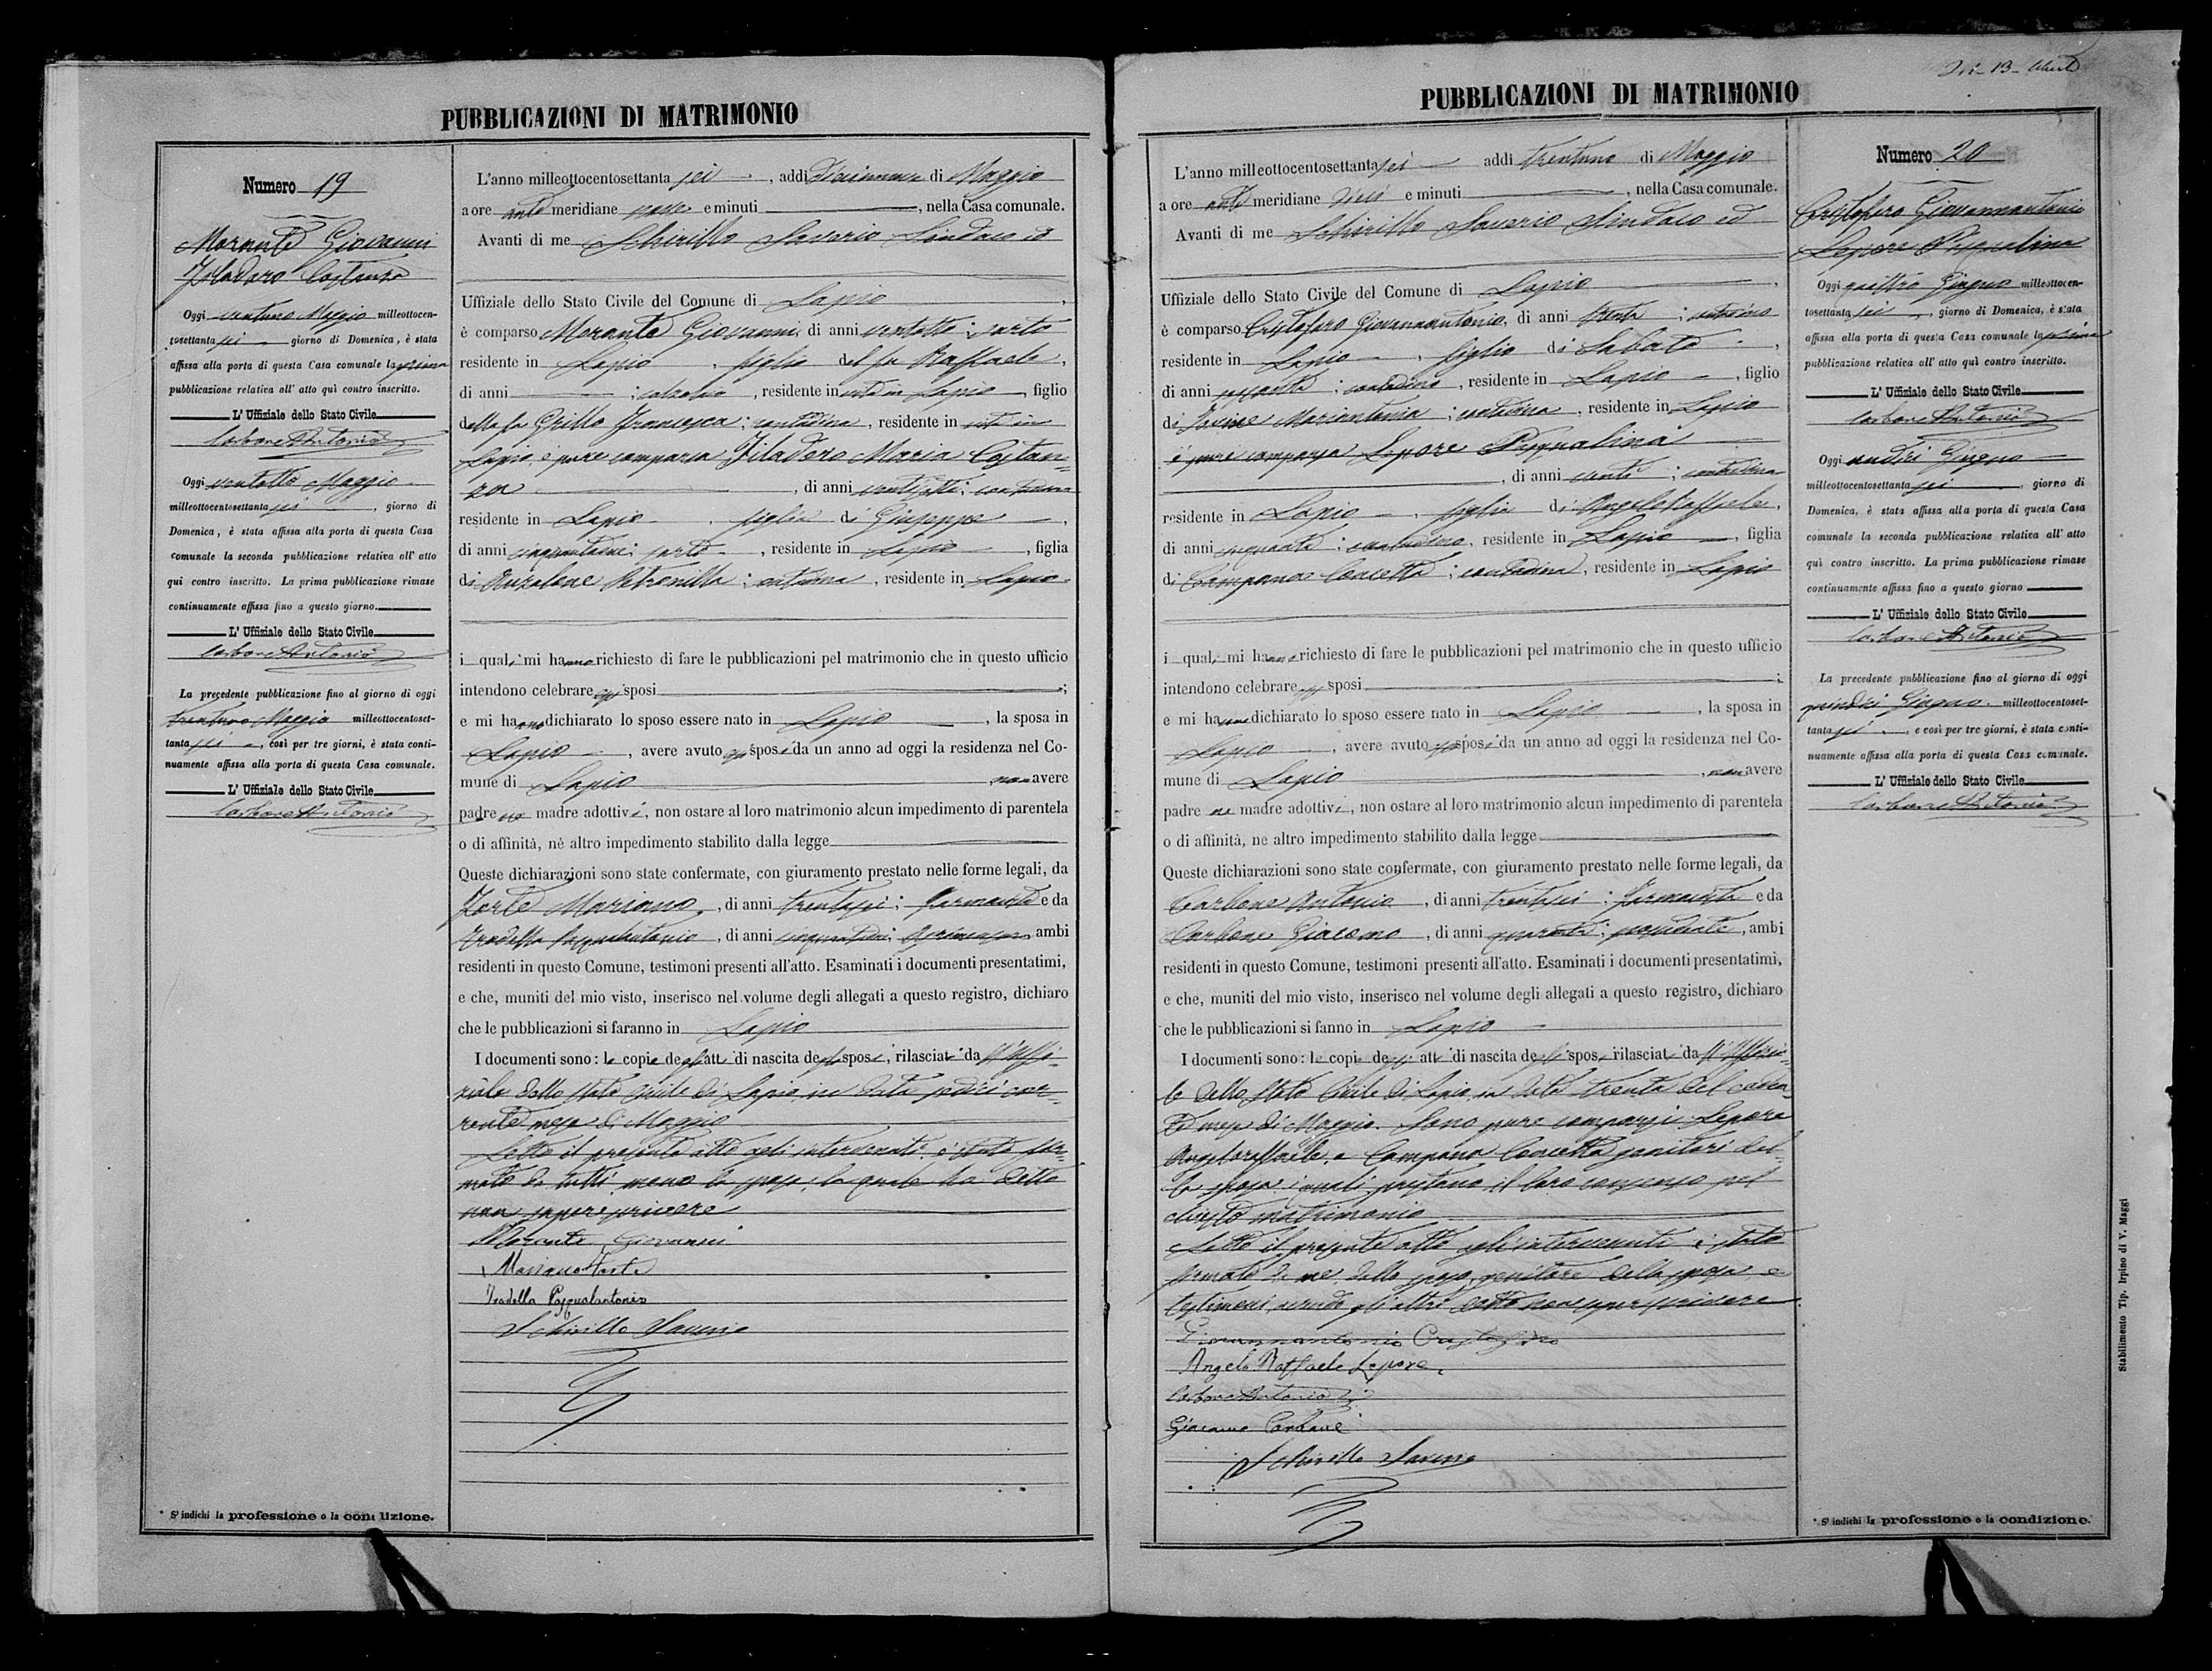 PUBBLICAZIONI DI MATRIMONIO
Numero 19
Morante Giovanni
Oggi ventuno Maggio milleottocen-
tosettanta sei giorno di Domenica, è stata
affissa alla porta di questa Casa comunale la prima
pubblicazione relativa all' atto quì contro inscritto.
L' Uffiziale dello Stato Civile
Carbone Antonio
Oggi ventotto Maggio
milleottocentosettanta sei, giorno di
Domenica, è stata affissa alla porta di questa Casa
comunale la seconda pubblicazione relativa all' atto
qui contro inscritto. La prima pubblicazione rimase
continuamente affissa fino a questo giorno.
L' Uffiziale dello Stato Civile
Carbone Antonio
La precedente pubblicazione fino al giorno di oggi
trentuno Maggio milleottocentoset-
tanta sei, così per tre giorni, è stata conti-
nuamente affissa alla porta di questa Casa comunale.
L' Uffiziale dello Stato Civile
Carbone Antonio
* S' indichi la professione o la condizione.
L'anno milleottocentosettanta sei, addì di Maggio
a ore ante meridiane nove e minuti, nella Casa comunale.
Avanti di me Schirillo Saverio Sindaco ed
Uffiziale dello Stato Civile del Comune di Lapio,
è comparso Morante Giovanni, di anni ventotto; sarto
residente in Lapio, figlio del fu Raffaele,
di anni ; calzolaio, residente in vita in Lapio, figlio
della fu Grillo Francesca; contadina, residente in vita in
Lapio, è pure comparsa Maria Costan-
za, di anni ventisette; contadina
residente in Lapio, figlia di Giuseppe,
di anni ; sarto, residente in Lapio, figlia
di Petronilla; contadina, residente in Lapio
i quali mi hanno richiesto di fare le pubblicazioni pel matrimonio che in questo ufficio
intendono celebrare essi sposi;
e mi hanno dichiarato lo sposo essere nato in Lapio, la sposa in
Lapio, avere avuto essi sposi da un anno ad oggi la residenza nel Co-
mune di Lapio, non avere
padre ne madre adottivi, non ostare al loro matrimonio alcun impedimento di parentela
o di affinità, nè altro impedimento stabilito dalla legge
Queste dichiarazioni sono state confermate, con giuramento prestato nelle forme legali, da
Forte Mariano, di anni trentasei; farmacista e da
Iradella Pasqualantonio, di anni ; Agrimensore ambi
residenti in questo Comune, testimoni presenti all'atto. Esaminati i documenti presentatimi,
e che, muniti del mio visto, inserisco nel volume degli allegati a questo registro, dichiaro
che le pubblicazioni si faranno in Lapio
I documenti sono: le copie degli atti di nascita degli sposi, rilasciate da ll' Uffi-
ziale dello Stato Civile di Lapio in data sedici cor-
rente mese di Maggio
Letto il presente atto agli intervenuti, è stato fir-
mato da tutti, meno la sposa, la quale ha detto
non sapere scrivere
Morante Giovanni
Mariano Forte
Iradella Pasqualantonio
Schirillo Saverio
PUBBLICAZIONI DI MATRIMONIO
L'anno milleottocentosettanta sei addì trentuno di Maggio
a ore ante meridiane dieci e minuti, nella Casa comunale.
Avanti di me Schirillo Saverio Sindaco ed
Uffiziale dello Stato Civile del Comune di Lapio,
è comparso Cristofaro Giovannantonio, di anni trenta; contadino
residente in Lapio, figlio di Sabato,
di anni sessanta; contadino, residente in Lapio, figlio
di Iovine Mariantonia; contadina, residente in Lapio
è pure comparsa Lepore Pasqualina
, di anni venti; contadina
residente in Lapio, figlia di Angeloraffaele,
di anni cinquanta; contadino, residente in Lapio, figlia
di Campana Concetta; contadina, residente in Lapio
i quali mi hanno richiesto di fare le pubblicazioni pel matrimonio che in questo ufficio
intendono celebrare essi sposi;
e mi hanno dichiarato lo sposo essere nato in Lapio, la sposa in
Lapio, avere avuto essi sposi da un anno ad oggi la residenza nel Co-
mune di Lapio, non avere
padre ne madre adottivi, non ostare al loro matrimonio alcun impedimento di parentela
o di affinità, ne altro impedimento stabilito dalla legge
Queste dichiarazioni sono state confermate, con giuramento prestato nelle forme legali, da
Carbone Antonio, di anni trentasei; farmacista e da
Carbone Giacomo, di anni quaranta; possidente, ambi
residenti in questo Comune, testimoni presenti all'atto. Esaminati i documenti presentatimi,
e che, muniti del mio visto, inserisco nel volume degli allegati a questo registro, dichiaro
che le pubblicazioni si fanno in Lapio
I documenti sono: le copie degli atti di nascita degli sposi rilasciate da ll' Uffizia-
le dello Stato Civile di Lapio in data trenta del caden-
te mese di Maggio. Sono pure comparsi Lepore
Angeloraffaele, e Campana Concetta genitori del-
la sposa i quali prestano il loro consenso pel
chiesto matrimonio
Letto il presente atto agli intervenuti è stato
firmato da me, dallo sposo, genitore della sposa e
testimoni, avendo gli altri detto non saper scrivere
Giovannantonio Cristofaro
Angelo Raffaele Lepore
Carbone Antonio
Giacomo Carbone
Schirillo Saverio
Numero 20
Cristofaro Giovannantonio
Lepore Pasqualina
Oggi quattro Giugno milleottocen-
tosettanta sei, giorno di Domenica, è stata
affissa alla porta di questa Casa comunale la prima
pubblicazione relativa all' atto quì contro inscritto.
L' Uffiziale dello Stato Civile
Carbone Antonio
Oggi undici Giugno
milleottocentosettanta sei, giorno di
Domenica, è stata affissa alla porta di questa Casa
comunale la seconda pubblicazione relativa all' atto
quì contro inscritto. La prima pubblicazione rimase
continuamente affissa fino a questo giorno
L' Uffiziale dello Stato Civile
Carbone Antonio
La precedente pubblicazione fino al giorno di oggi
quindici Giugno milleottocentoset-
tanta sei, e così per tre giorni, è stata conti-
nuamente affissa alla porta di questa Casa comunale.
L' Uffiziale dello Stato Civile
Carbone Antonio
* S' indichi la professione o la condizione.
Stabilimento Tip. Irpino di V. Maggi